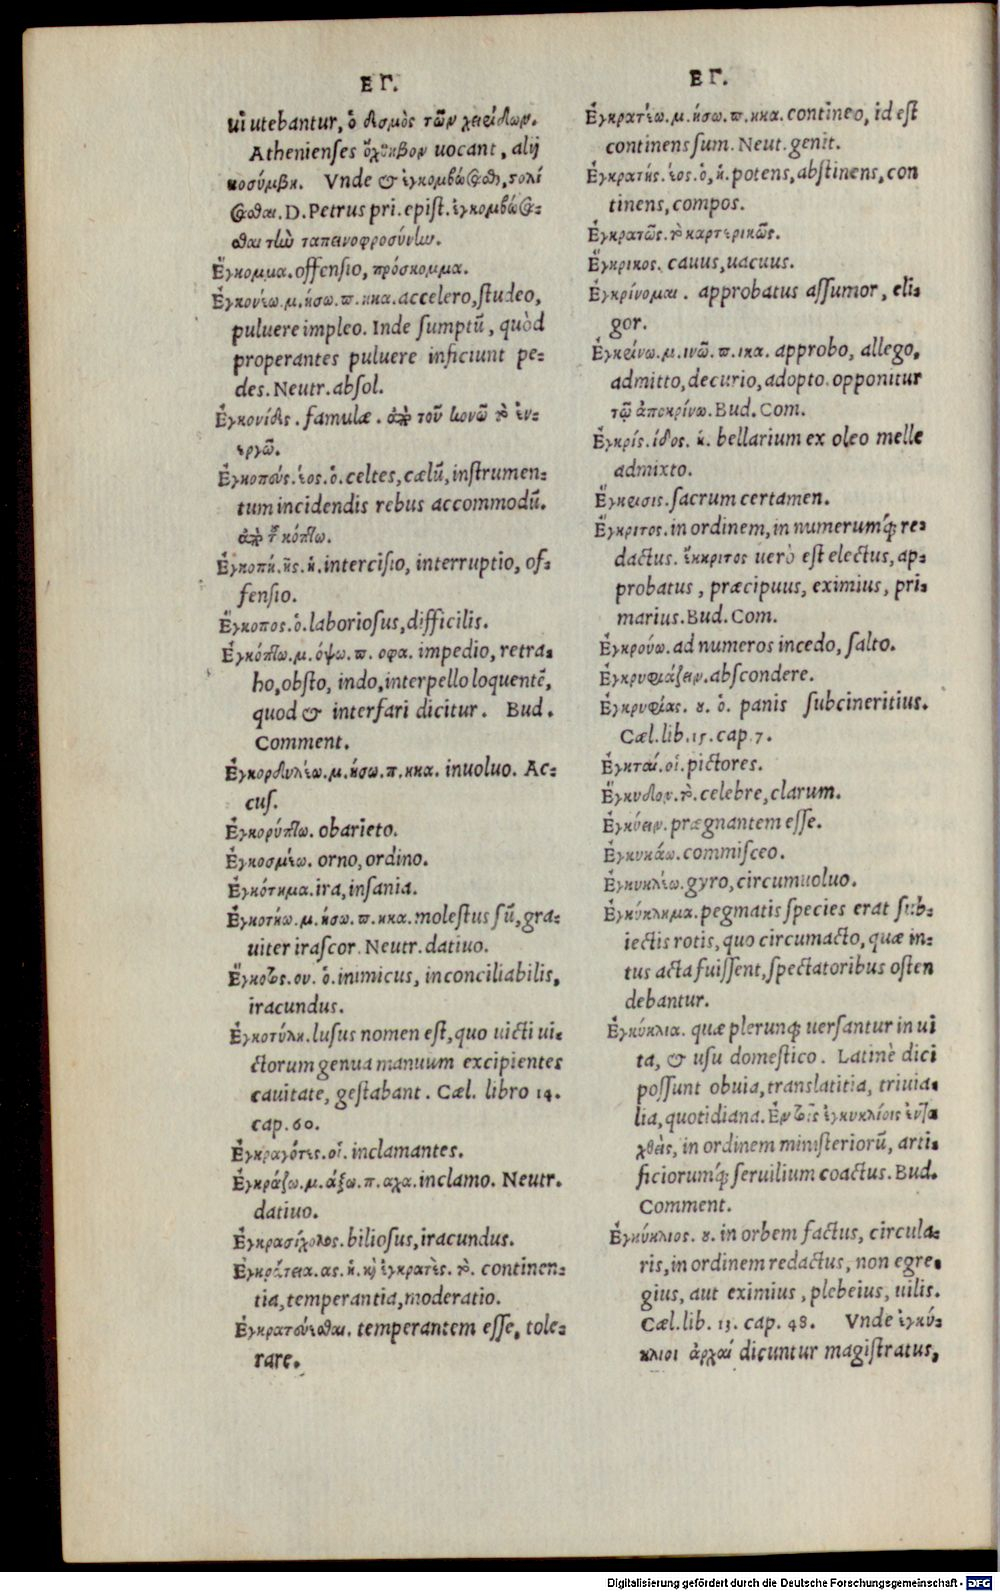 ΕΓ.
ui utebantur, ὁ δεσμὸς τῶν χειρίδων.
Athenienses ὄχθηβον uocant, alij
κοσύμβη. Vnde & ἐγκομβώσασθαι, στολίσασθαι. D. Petrus pri. epist. ἐγκομβώσασθαι τὴν ταπεινοφροσύνην.
Ἔγκομμα. offensio, πρόσκομμα.
Ἐγκονέω. μ. ήσω. π. ηκα. accelero, studeo,
puluere impleo. Inde sumptū, quòd
properantes puluere inficiunt pe-
des. Neutr. absol.
Ἐγκονίδες. famulæ. ἀπὸ τοῦ κονῶ τὸ ἐν-
εργῶ.
Ἐγκοπεύς. έος. ὁ. celtes, cælū, instrumen-
tum incidendis rebus accommodū.
ἀπὸ τ κόπτω.
Ἐγκοπή. ῆς. ἡ. intercisio, interruptio, of-
fensio.
Ἔγκοπος. ὁ. laboriosus, difficilis.
Ἐγκόπτω. μ. όψω. π. οφα. impedio, retra-
ho, obsto, indo, interpello loquentē,
quod & interfari dicitur. Bud.
Comment.
Ἐγκορδυλέω. μ. ήσω. π. ηκα. inuoluo. Ac-
cus.
Ἐγκορύπτω. obarieto.
Ἐγκοσμέω. orno, ordino.
Ἐγκότημα. ira, insania.
Ἐγκοτέω. μ. ήσω. π. ηκα. molestus sū, gra-
uiter irascor. Neutr. datiuo.
Ἔγκοτος. ου. ὁ. inimicus, inconciliabilis,
iracundus.
Ἐγκοτύλη. lusus nomen est, quo uicti ui-
ctorum genua manuum excipientes
cauitate, gestabant. Cæl. libro 14.
cap. 60.
Ἐγκραγότες. οἱ. inclamantes.
Ἐγκράζω. μ. άξω. π. αχα. inclamo. Neutr.
datiuo.
Ἐγκρασίχολος. biliosus, iracundus.
Ἐγκράτεια. ας. ἡ. καὶ ἐγκρατὲς. τὸ. continen-
tia, temperantia, moderatio.
Ἐγκρατεύεσθαι. temperantem esse, tole-
rare.
ΕΓ.
Ἐγκρατέω. μ. ήσω. π. ηκα. contineo, id est
continens sum. Neut. genit.
Ἐγκρατής. έος. ὁ, ἡ. potens, abstinens, con
tinens, compos.
Ἐγκρατῶς. τὸ καρτερικῶς.
Ἔγκρικος. cauus, uacuus.
Ἐγκρίνομαι. approbatus assumor, eli-
gor.
Ἐγκρίνω. μ. ινῶ. π. ικα. approbo, allego,
admitto, decurio, adopto. opponitur
τῷ ἀποκρίνω. Bud. Com.
Ἐγκρίς. ίδος. ἡ. bellarium ex oleo melle
admixto.
Ἔγκρισις. sacrum certamen.
Ἔγκριτος. in ordinem, in numerumq́; re-
dactus. ἔκκριτος uerò est electus, ap-
probatus, præcipuus, eximius, pri-
marius. Bud. Com.
Ἐγκρούω. ad numeros incedo, salto.
Ἐγκρυφιάζειν. abscondere.
Ἐγκρυφίας. ου. ὁ. panis subcineritius.
Cæl. lib. 15. cap. 7.
Ἐγκταί. οἱ. pictores.
Ἔγκυδον. τὸ. celebre, clarum.
Ἐγκύειν. prægnantem esse.
Ἐγκυκάω. commisceo.
Ἐγκυκλέω. gyro, circumuoluo.
Ἐγκύκλημα. pegmatis species erat sub-
iectis rotis, quo circumacto, quæ in-
tus acta fuissent, spectatoribus osten
debantur.
Ἐγκύκλια. quæ plerunq; uersantur in ui
ta, & usu domestico. Latinè dici
possunt obuia, translatitia, triuia-
lia, quotidiana. Ἐν τοῖς ἐγκυκλίοις ἐντα
χθεὶς, in ordinem ministeriorū, arti-
ficiorumq́; seruilium coactus. Bud.
Comment.
Ἐγκύκλιος. ου. in orbem factus, circula-
ris, in ordinem redactus, non egre-
gius, aut eximius, plebeius, uilis.
Cæl. lib. 13. cap. 48. Vnde ἐγκύ-
κλιοι ἀρχαί dicuntur magistratus,
Digitalisierung gefördert durch die Deutsche Forschungsgemeinschaft - DFG